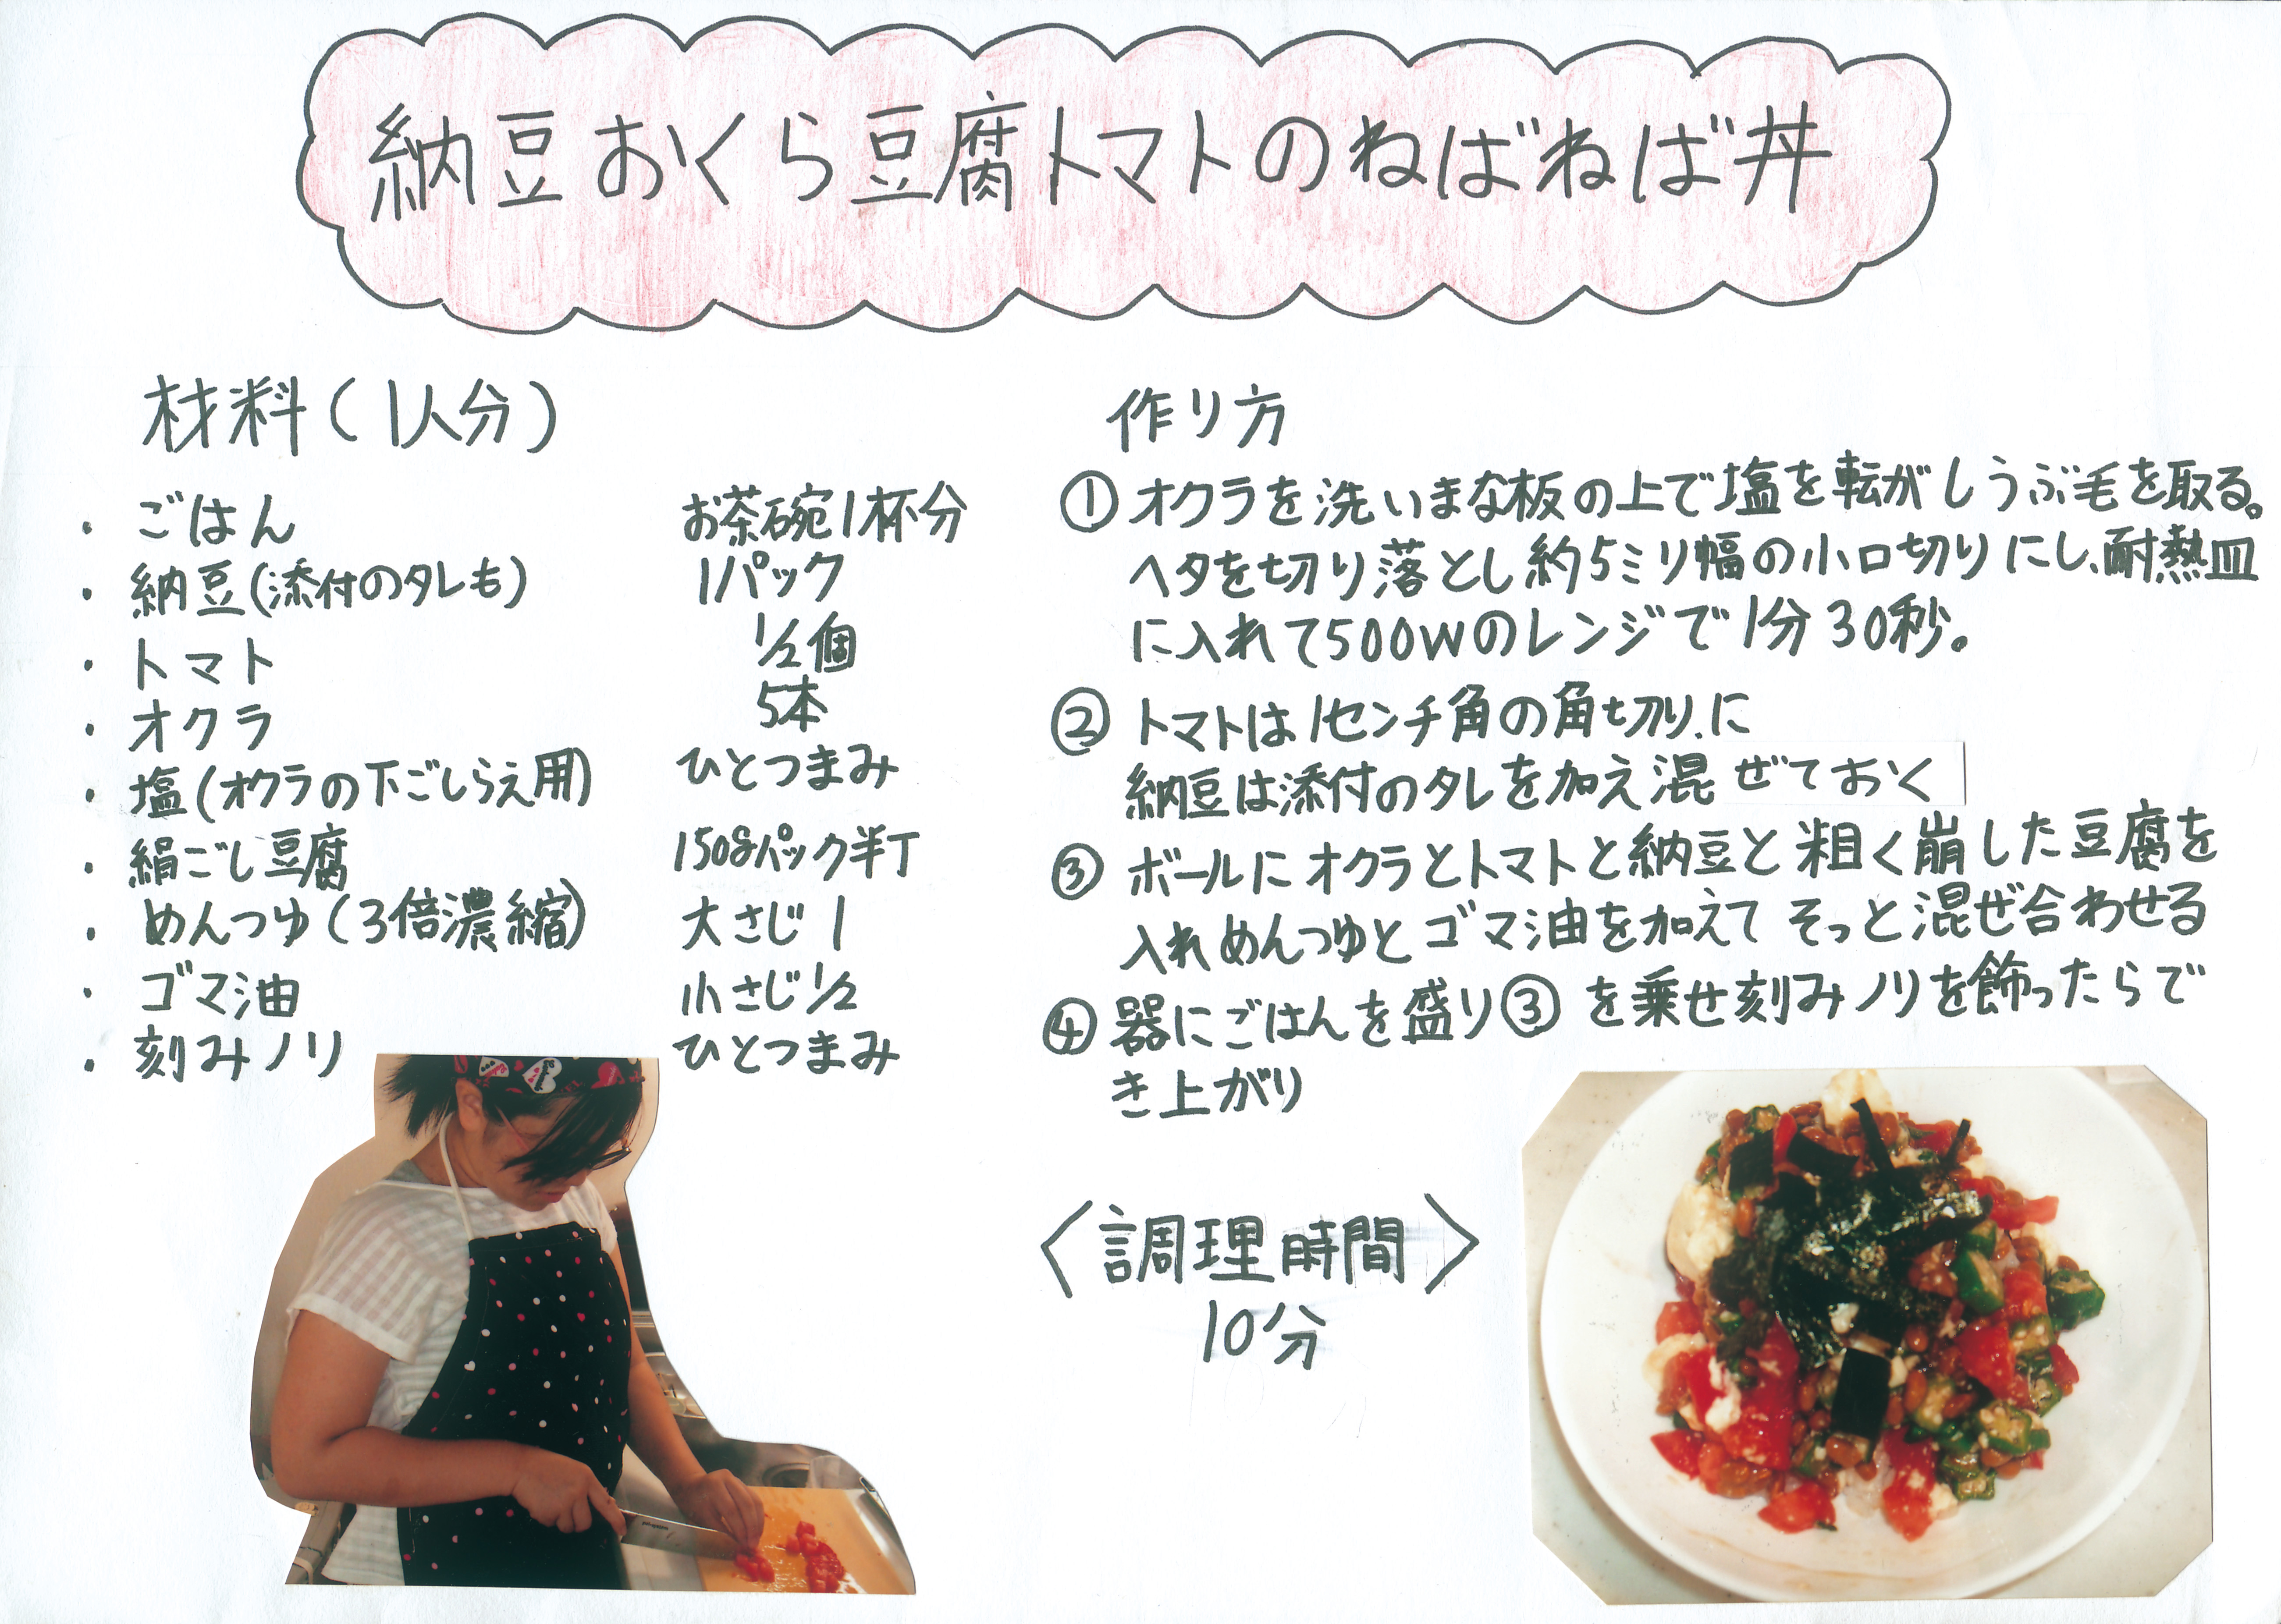 納豆おくら豆腐トマトのねばねば丼
材料(1人分)
・ごはん お茶碗1杯分
・納豆(添付のタレも) 1パック
・トマト 1/2個
・オクラ 5本
・塩(オクラの下ごしらえ用) ひとつまみ
・絹ごし豆腐 150gパック半丁
・めんつゆ(3倍濃縮) 大さじ1
・ゴマ油 小さじ1/2
・刻みノリ ひとつまみ
作り方
①オクラを洗いまな板の上で塩を転がしうぶ毛を取る。
ヘタを切り落とし約5ミリ幅の小口切りにし、耐熱皿
に入れて500Wのレンジで1分30秒。
②トマトは1センチ角の角切りに
納豆は添付のタレを加え混ぜておく
③ボールにオクラとトマトと納豆と粗く崩した豆腐を
入れめんつゆとゴマ油を加えてそっと混ぜ合わせる
④器にごはんを盛り③を乗せ刻みノリを飾ったらで
き上がり
〈調理時間〉
10分